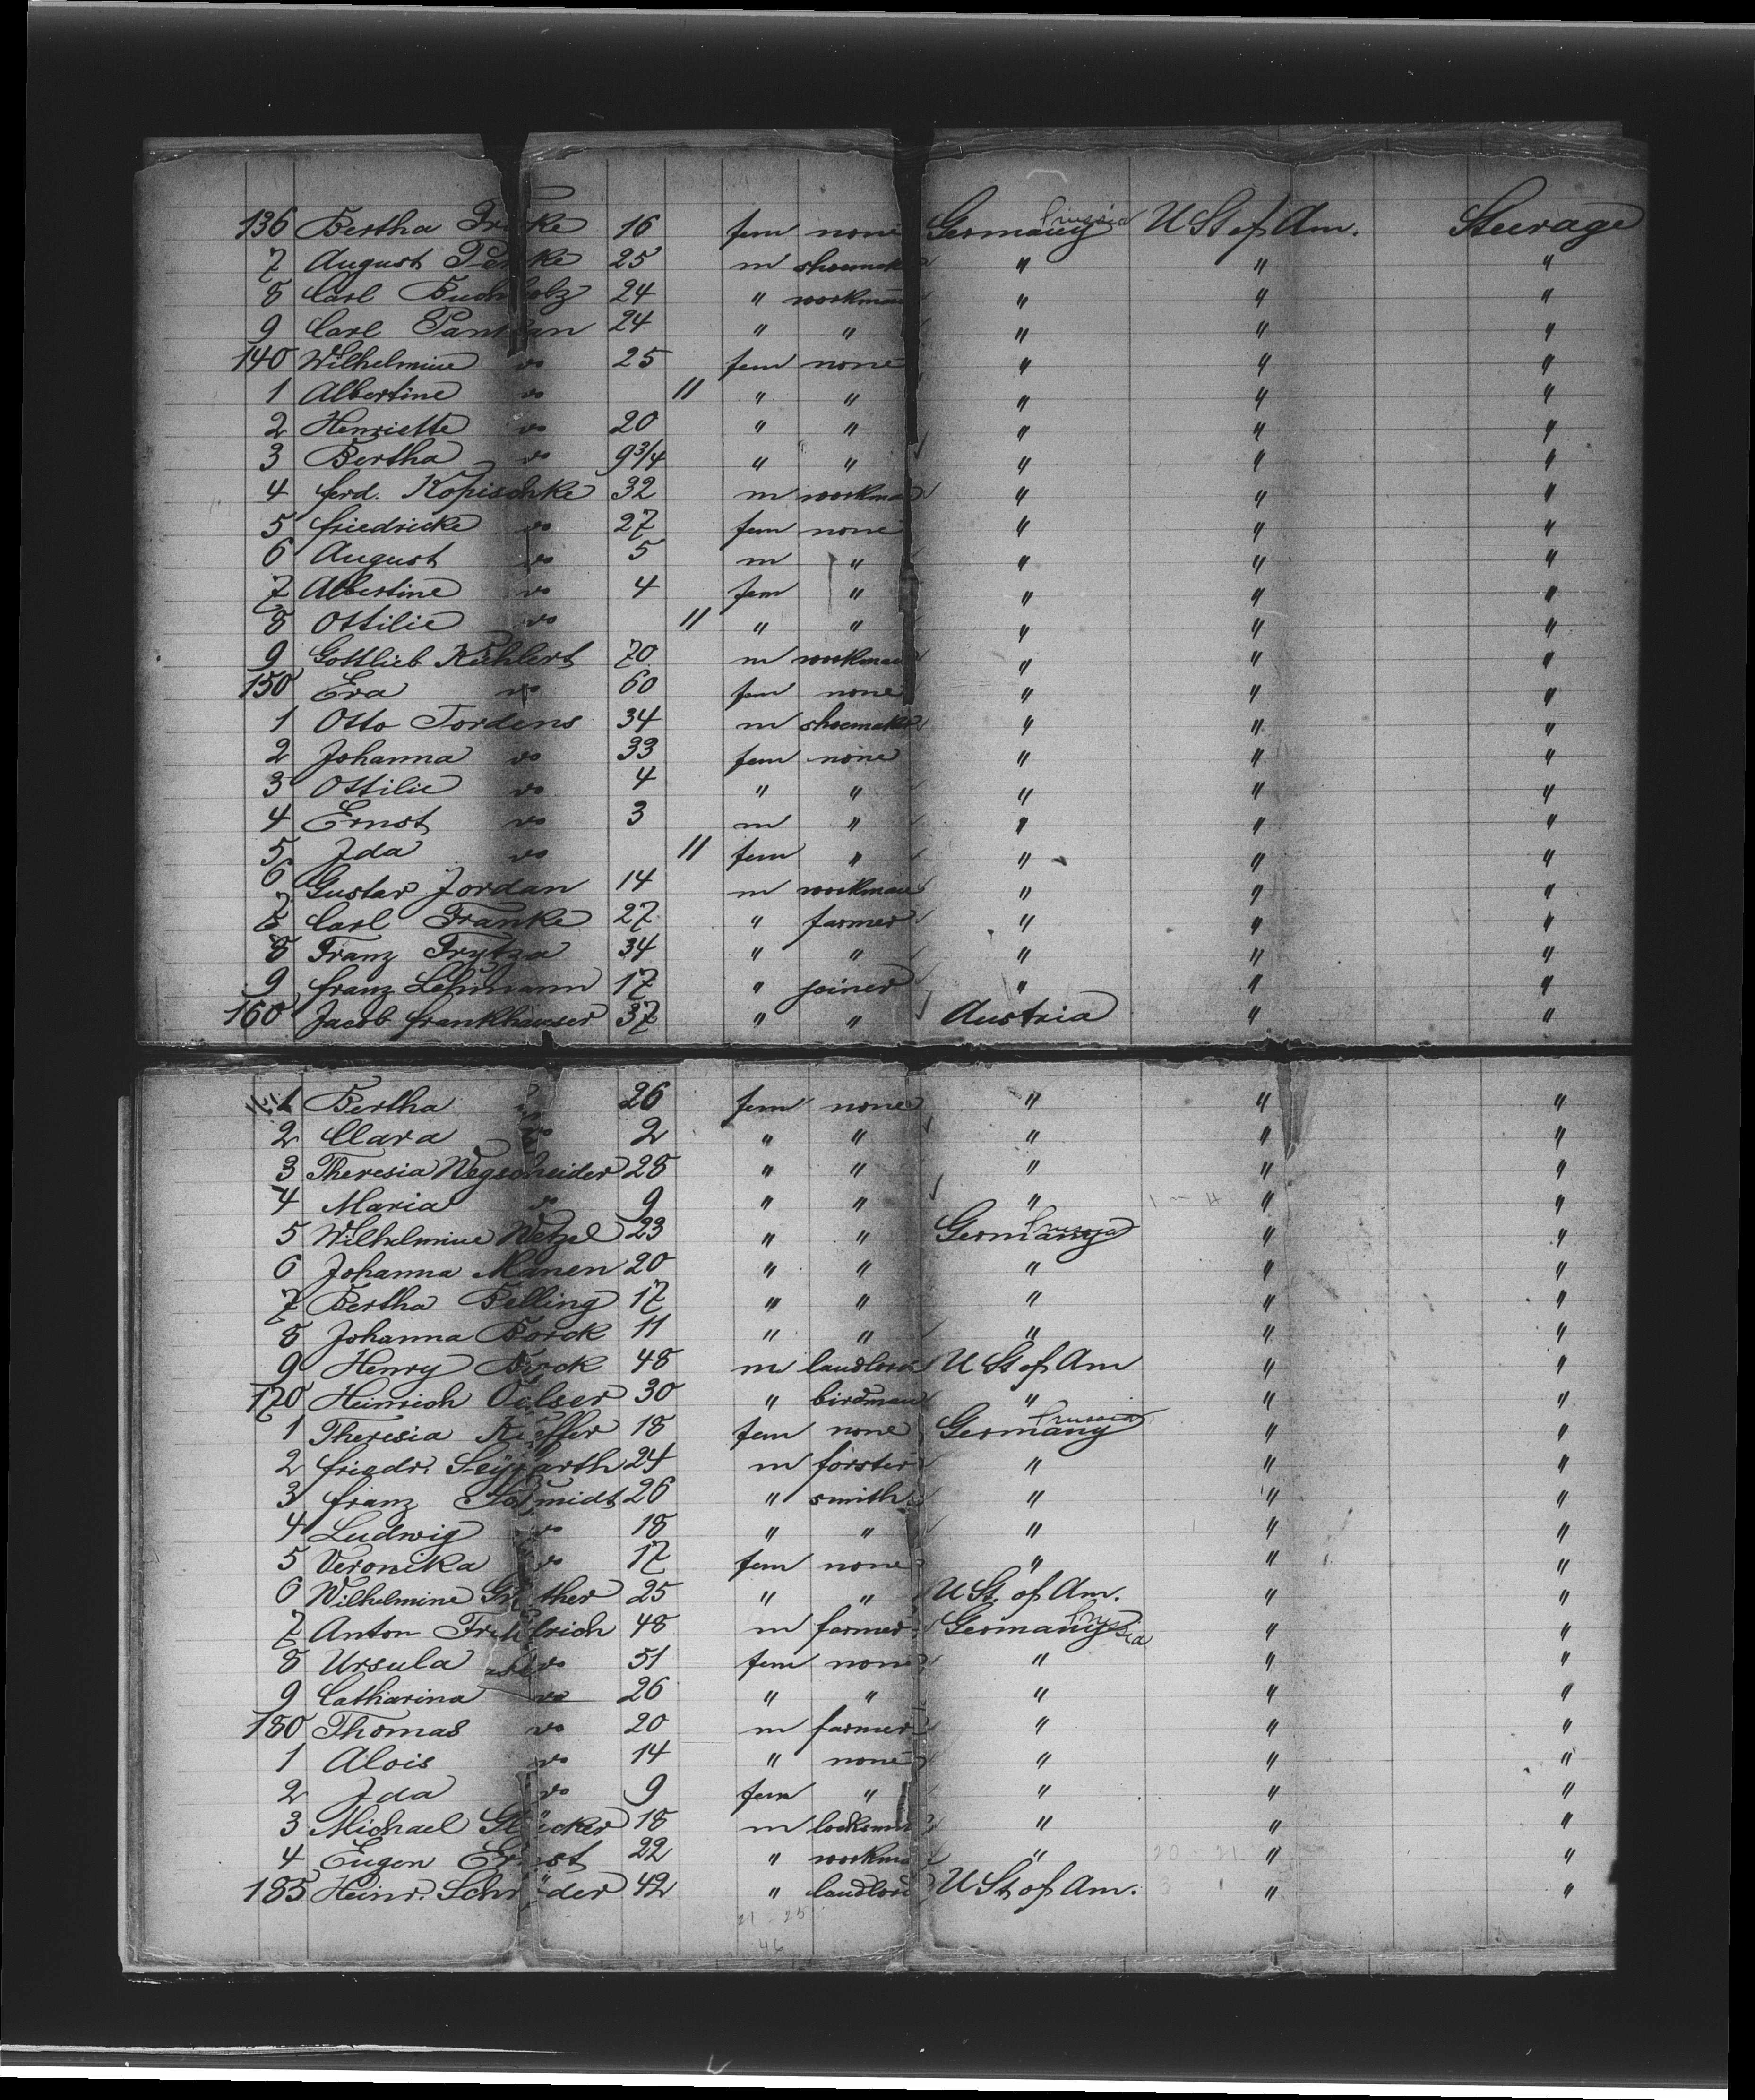 136 Bertha Fricke 16 fem none Germany Prussia U St of Am. Steerage
7 August 25 m shoemak " " "
8 Carl Buchholz 24 " workman " " "
9 Carl 24 " " " " "
140 Wilhelmine do 25 fem none " " "
1 Albertine do 11 " " " " "
2 Henriette do 20 " " " " "
3 Bertha do 9 3/4 " " " " "
4 Ferd. Kopischke 32 m workman " " "
5 Friedricke do 27 fem none " " "
6 August do 5 m " " " "
7 Albertine do 4 fem " " " "
8 Ottilie do 11 " " " " "
9 Gottlieb Kühlert 70 m workman " " "
150 Eva do 60 fem none " " "
1 Otto Jordens 34 m shoemaker " " "
2 Johanna do 33 fem none " " "
3 Ottilie do 4 " " " " "
4 Ernst do 3 m " " " "
5 Ida do 11 fem " " " "
6 Gustav Jordan 14 m workman " " "
7 Carl Franke 27 " farmer " " "
8 Franz Frytza 34 " " " " "
9 Franz Lehmann 17 " joiner " " "
160 Jacob Frankhauser 37 " " Austria " "
1 Bertha do 26 fem none " " "
2 Clara do 2 " " " " "
3 Theresia Wegscheider 28 " " " " "
4 Maria do 9 " " " " "
5 Wilhelmine Wetzel 23 " " Germany Prussia " "
6 Johanna Manen 20 " " " " "
7 Bertha Belling 17 " " " " "
8 Johanna Borck 11 " " " " "
9 Henry Borck 48 m landlord U St of Am " "
170 Heinrich Oelser 30 " birdman " " "
1 Theresia Kieffer 18 fem none Germany Prussia " "
2 Friedr. Seyfarth 24 m forster " " "
3 Franz Schmidt 26 " smith " " "
4 Ludwig do 18 " " " " "
5 Veronika do 17 fem none " " "
6 Wilhelmine 25 " " U St. of Am. " "
7 Anton 48 m farmer Germany Prussia " "
8 Ursula do 51 fem none " " "
9 Catharina do 26 " " " " "
180 Thomas do 20 m farmer " " "
1 Alois do 14 " none " " "
2 Ida do 9 fem " " " "
3 Michael Glücker 18 m locksmit " " "
4 Eugen Ernst 22 " workma " " "
185 Heinr. Schröder 42 " landlord U St of Am. " "
21 - 25
46